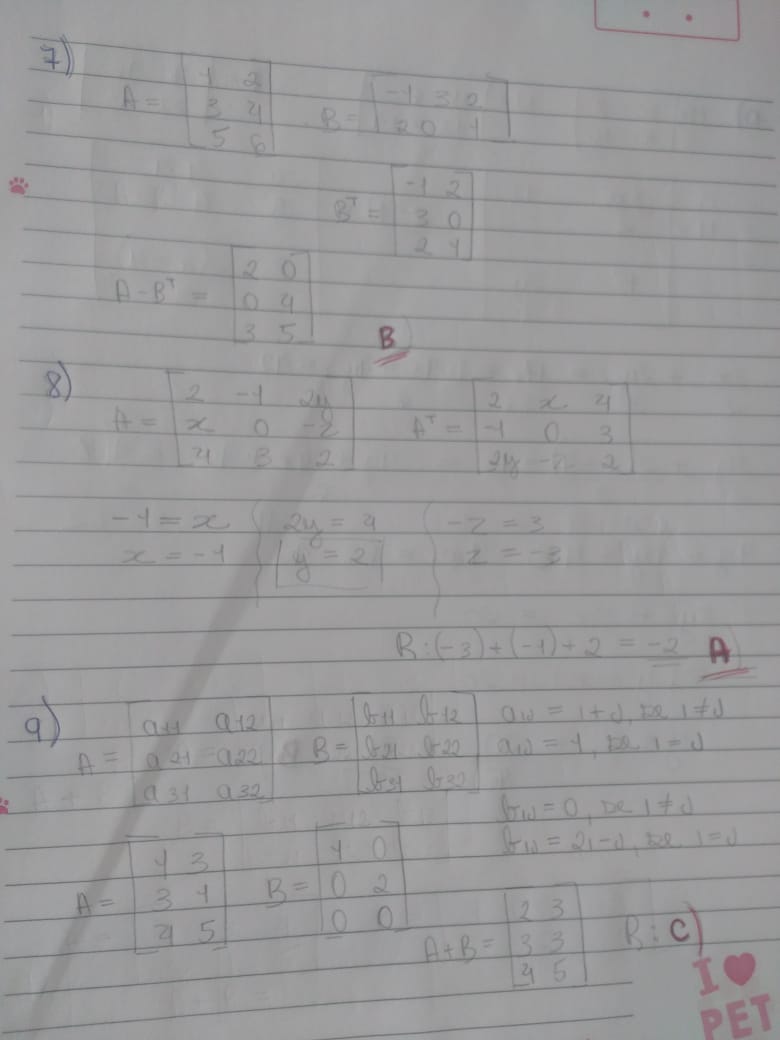 7)
A = 1 2
3 4
5 6
B = -1 3 2
2 0 1
Bᵀ = -1 2
3 0
2 1
A - Bᵀ = 2 0
0 4
3 5
B
8)
A = 2 -1 2y
x 0 -z
4 3 2
Aᵀ = 2 x 4
-1 0 3
2y -z 2
-1 = x
x = -1
2y = 4
y = 2
-z = 3
z = -3
R: (-3) + (-1) + 2 = -2 A
9)
A = a11 a12
a21 a22
a31 a32
B = b11 b12
b21 b22
b31 b32
aij = i + j, se i ≠ j
aij = 1, se i = j
bij = 0, se i ≠ j
bij = 2i - j, se i = j
A = 1 3
3 1
4 5
B = 1 0
0 2
0 0
A + B = 2 3
3 3
4 5
R: C)
I ♥
PET